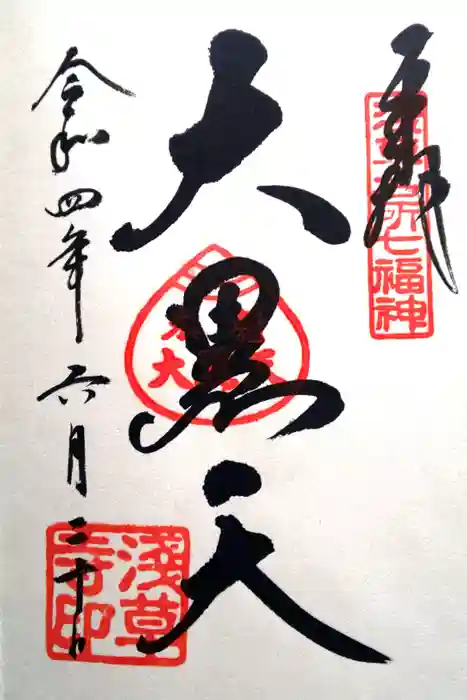 奉拝
浅草名所七福神
大黒天
令和四年六月三十日
淺草寺印